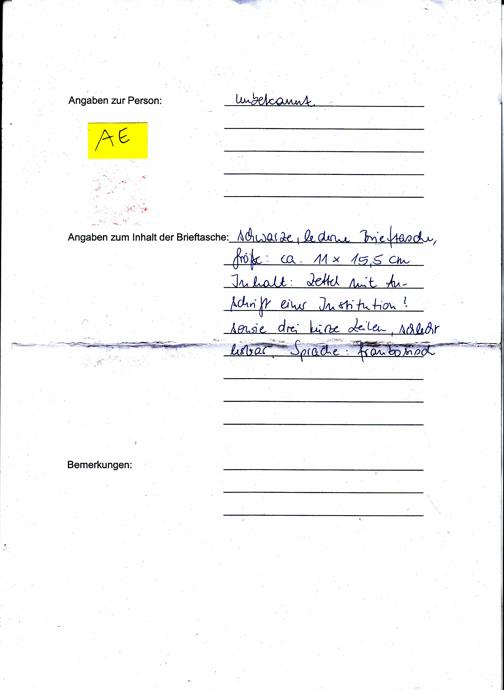 Angaben zur Person: unbekannt.
AE
Angaben zum Inhalt der Brieftasche: schwarze, lederne Brieftasche,
Größe: ca. 11 x 15,5 cm
Inhalt: Zettel mit An-
schrift einer Institution?
sowie drei kurze Zeilen, schlecht
lesbar, Sprache: französisch
Bemerkungen: